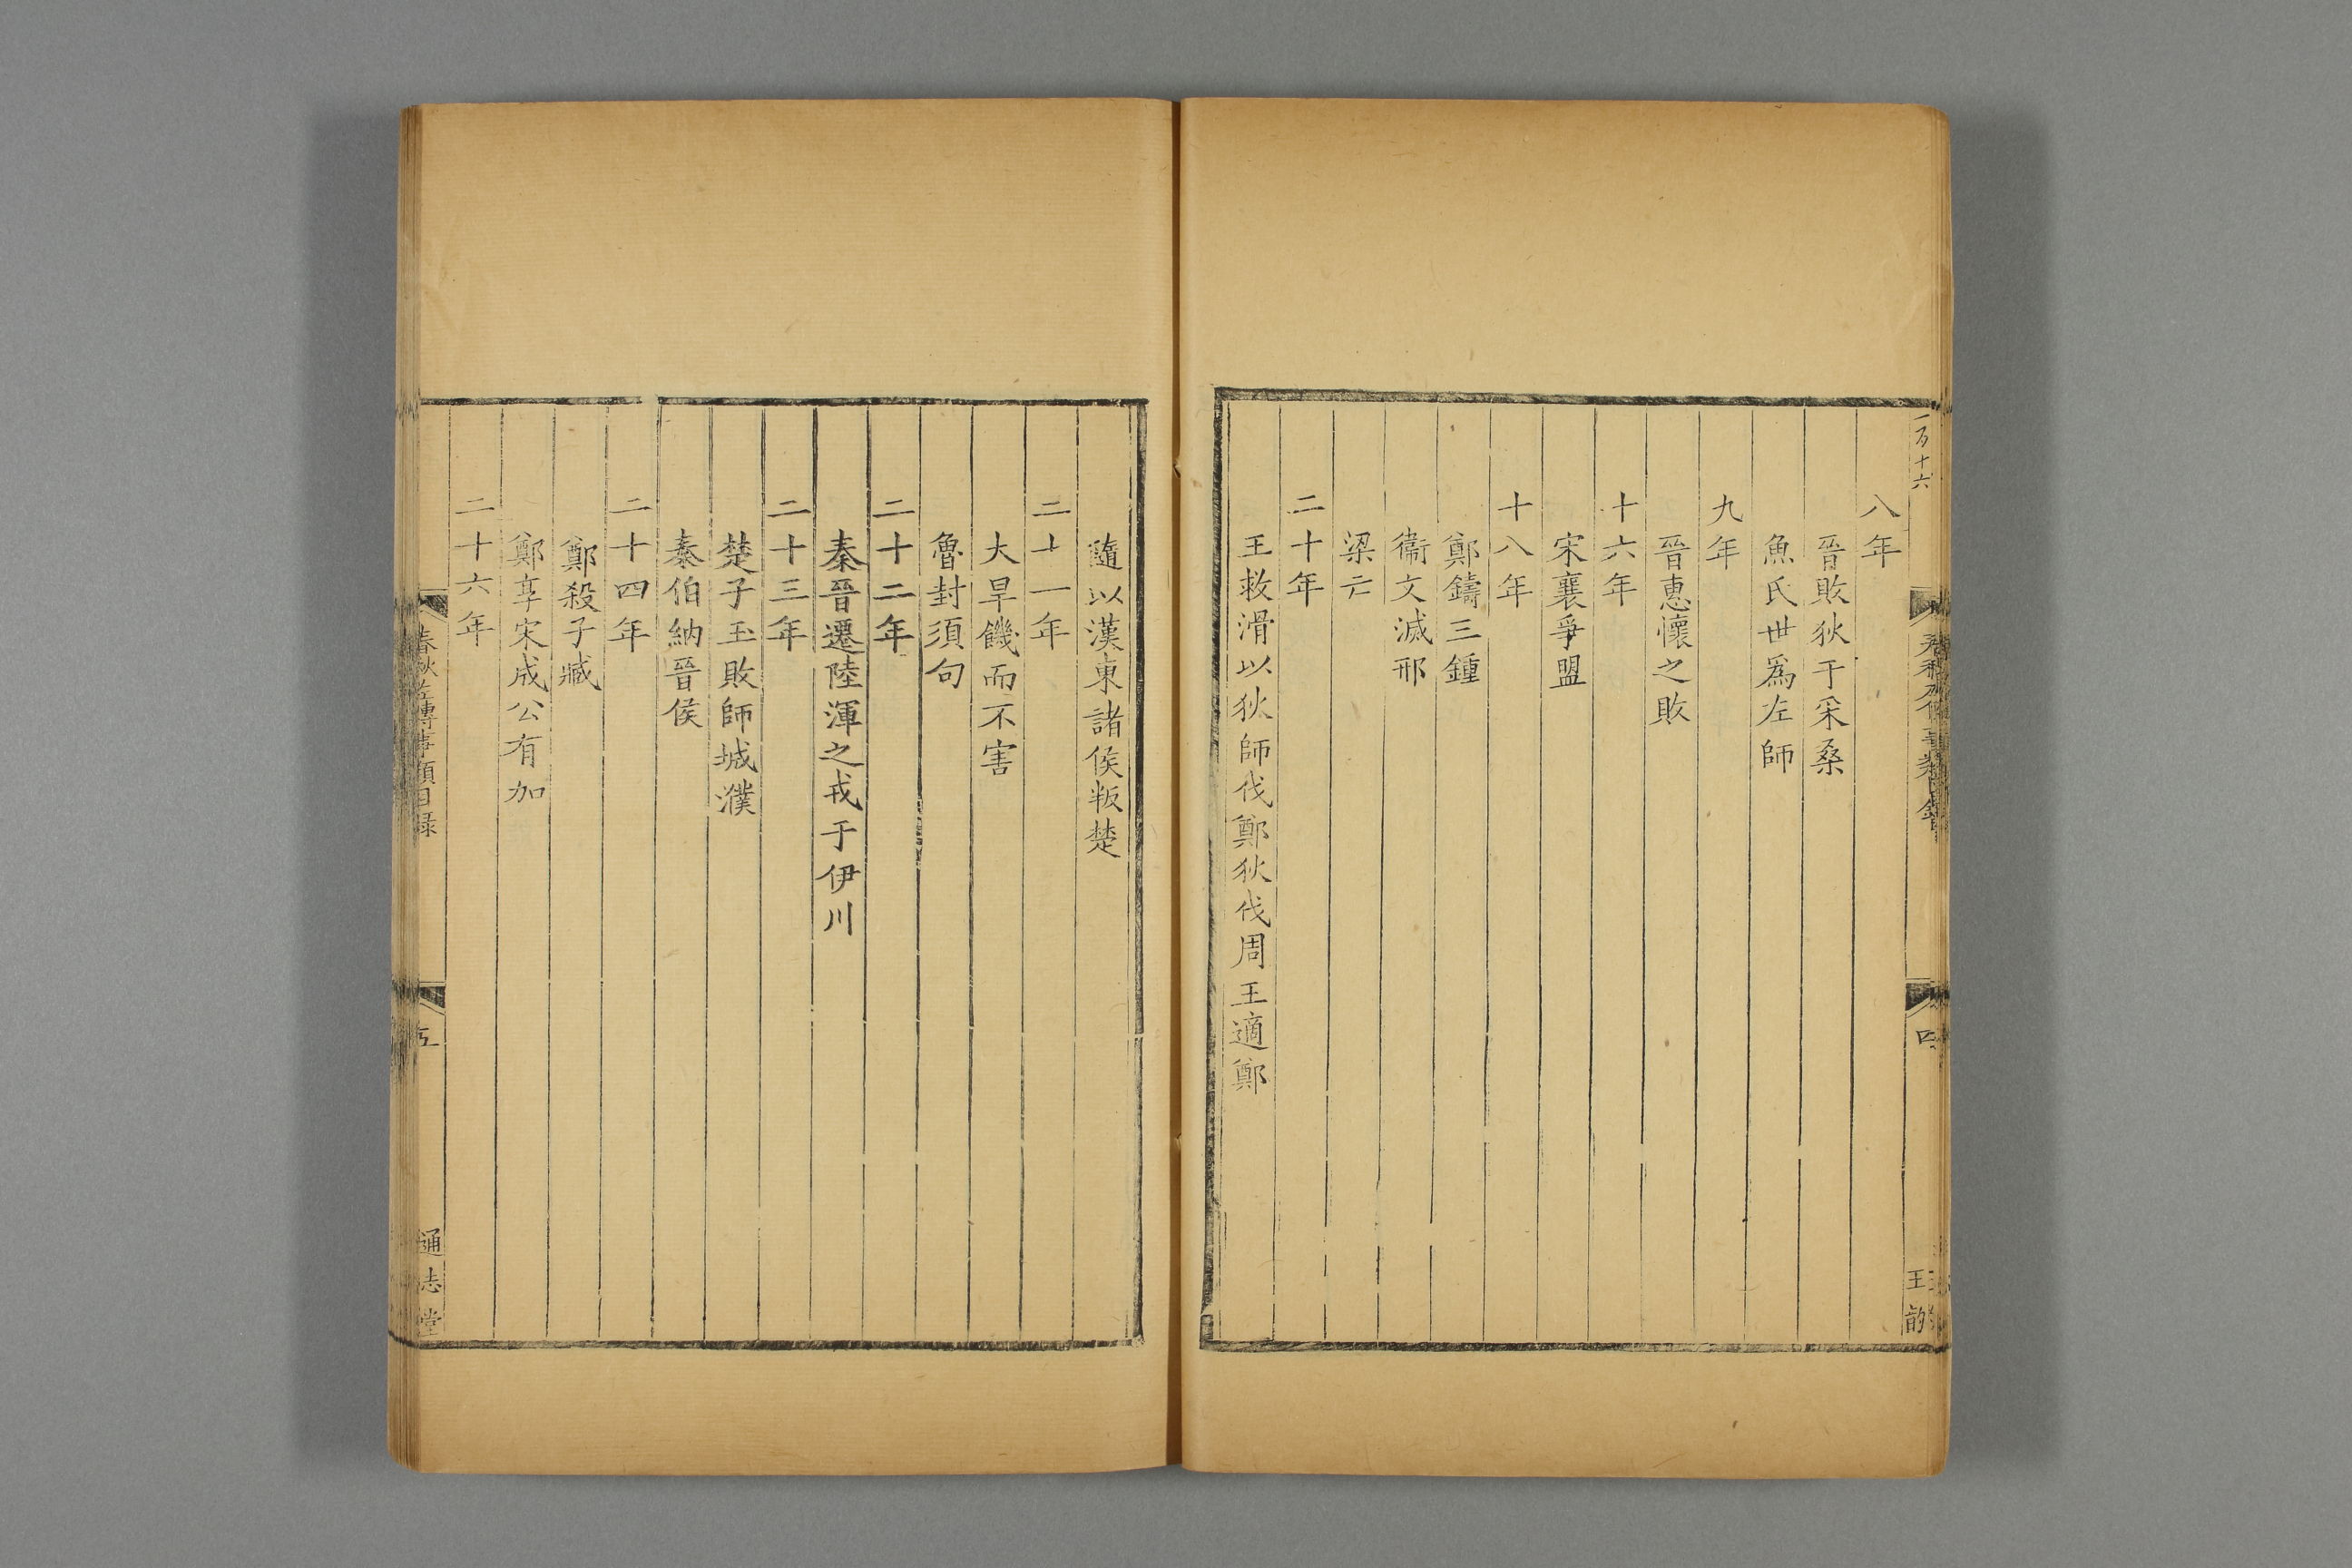 八年
晉敗狄于采桑
魚氏世爲左師
九年
晉惠懷之敗
十六年
宋襄爭盟
十八年
鄭鑄三鍾
衞文滅邢
梁亡
二十年
王救滑以狄師伐鄭狄伐周王適鄭
隨以漢東諸侯叛楚
二十一年
大旱饑而不害
魯封須句
二十二年
秦晉遷陸渾之戎于伊川
二十三年
楚子玉敗師城濮
秦伯納晉侯
二十四年
鄭殺子臧
鄭享宋成公有加
二十六年
春秋左傳事類目録
五
通志堂